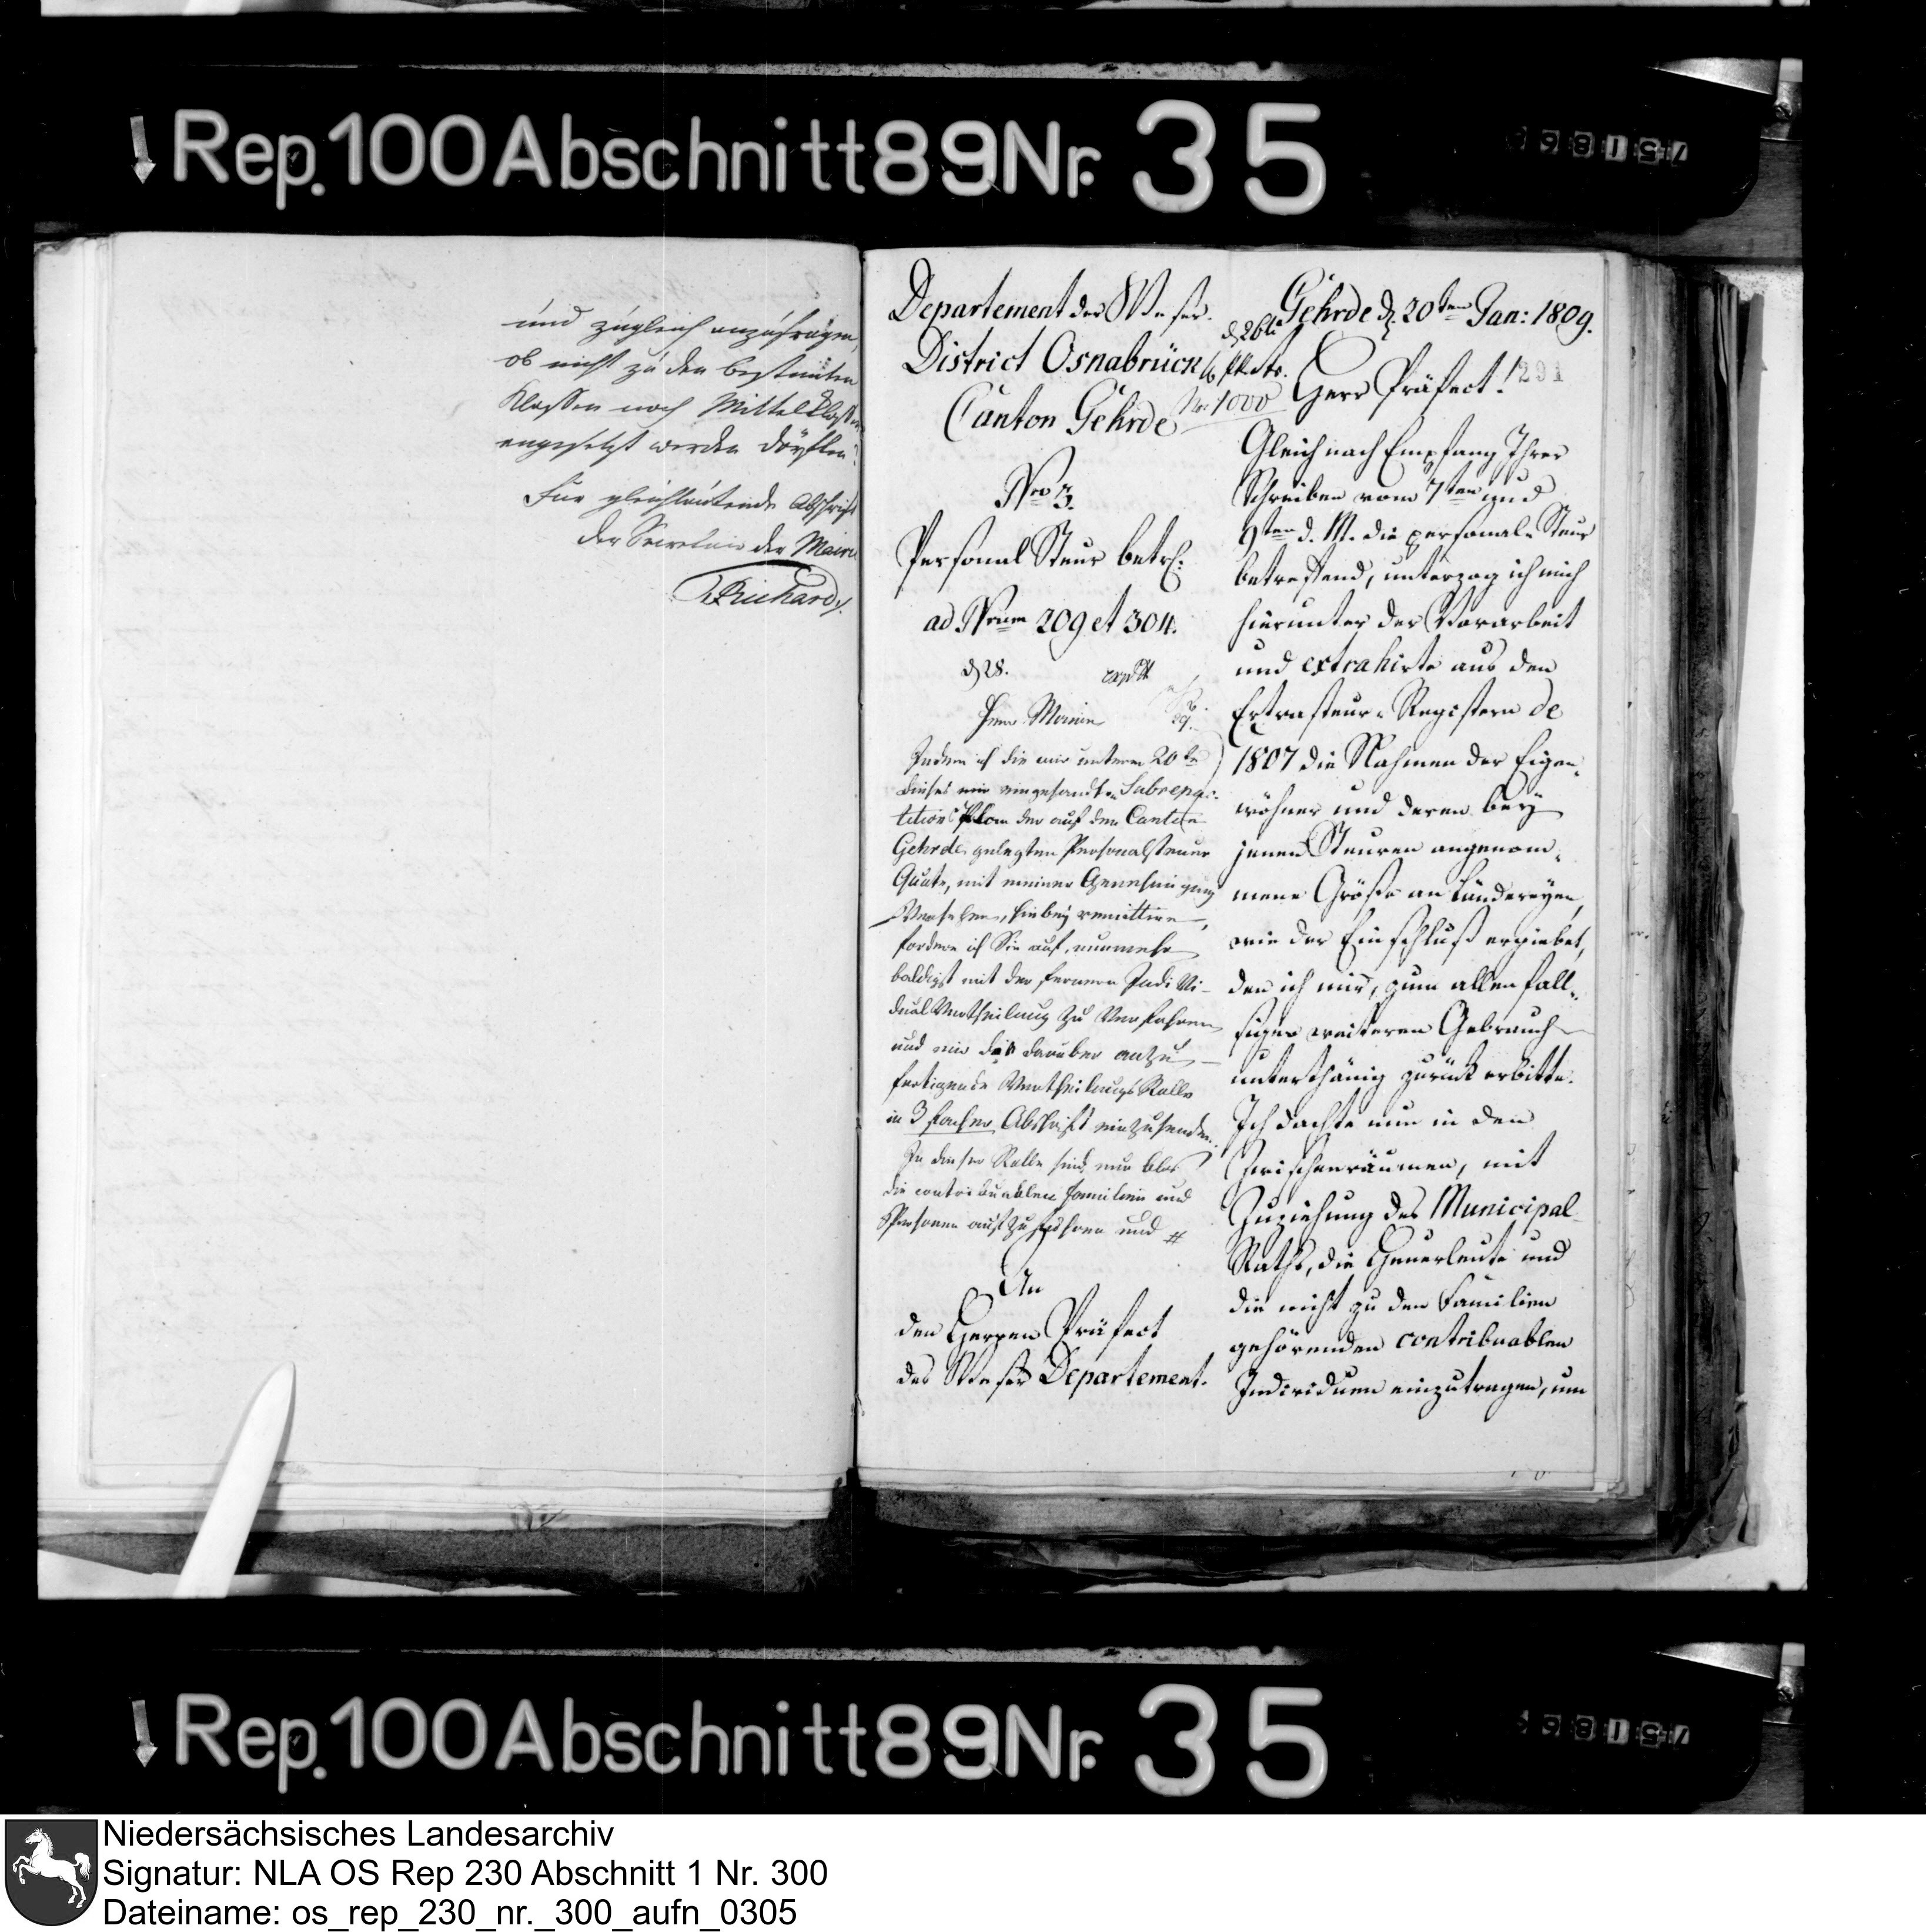 Rep. 100 Abschnitt 89 Nr. 35
und zugleich anzufragen,
ob nicht zu den bestimten
Klassen noch Mittelklassen
angesetzt werden dörften.
Für gleichlautende Abschrift
Der Secretair der Mairie
Richard
Departement der Weser.
District Osnabrück
Canton Gehrde
Nro 3.
Personal Steur betr.
ad Nrum 209 et 304.
Herr Maire
Indem ich die mir unterm 20ten
dieses mir eingesandten Subrepar-
titions Plan der auf den Canton
Gehrde gelegten Personalsteuer
Quote, mit meiner Genehmigung
Versehen, hiebey remittire,
fordere ich Sie auf, nunmehr
baldigst mit der fernern Indivi-
dual Vertheilung zu Verfahren
und mir die darüber anzu-
fertigende Vertheilungs Rolle
in 3 facher Abschrift einzusenden.
In dieser Rolle sind nur blos
die contribuablen Familien und
Personen aufzuführen und #
An
den Herren Präfect
des Weser Departement.
Gehrde d. 20ten Jan: 1809.
No 1000
Herr Präfect!
291
Gleich nach Empfang Ihrer
Schreiben vom 7ten und
9ten d. M. die personal-Steur
betreffend, unterzog ich mich
hierunter der Vorarbeit
und extrahirte aus den
Extrasteur-Registern de
1807 die Nahmen der Eigen-
wohner und deren bey
jenen Steuren angenom-
mene Größe an Ländereyen,
wie der Einschluß ergiebet,
den ich mir, zum allenfall-
sigen weiteren Gebrauch
unterthänig zurück erbitte.
Ich dachte nun in den
Zwischenräumen, mit
Zuziehung des Municipal-
Raths, die Heuerleute und
die nicht zu den Familien
gehörenden contribuablen
Individuen einzutragen, um
Rep. 100 Abschnitt 89 Nr. 35
Niedersächsisches Landesarchiv
Signatur: NLA OS Rep 230 Abschnitt 1 Nr. 300
Dateiname: os_rep_230_nr._300_aufn_0305